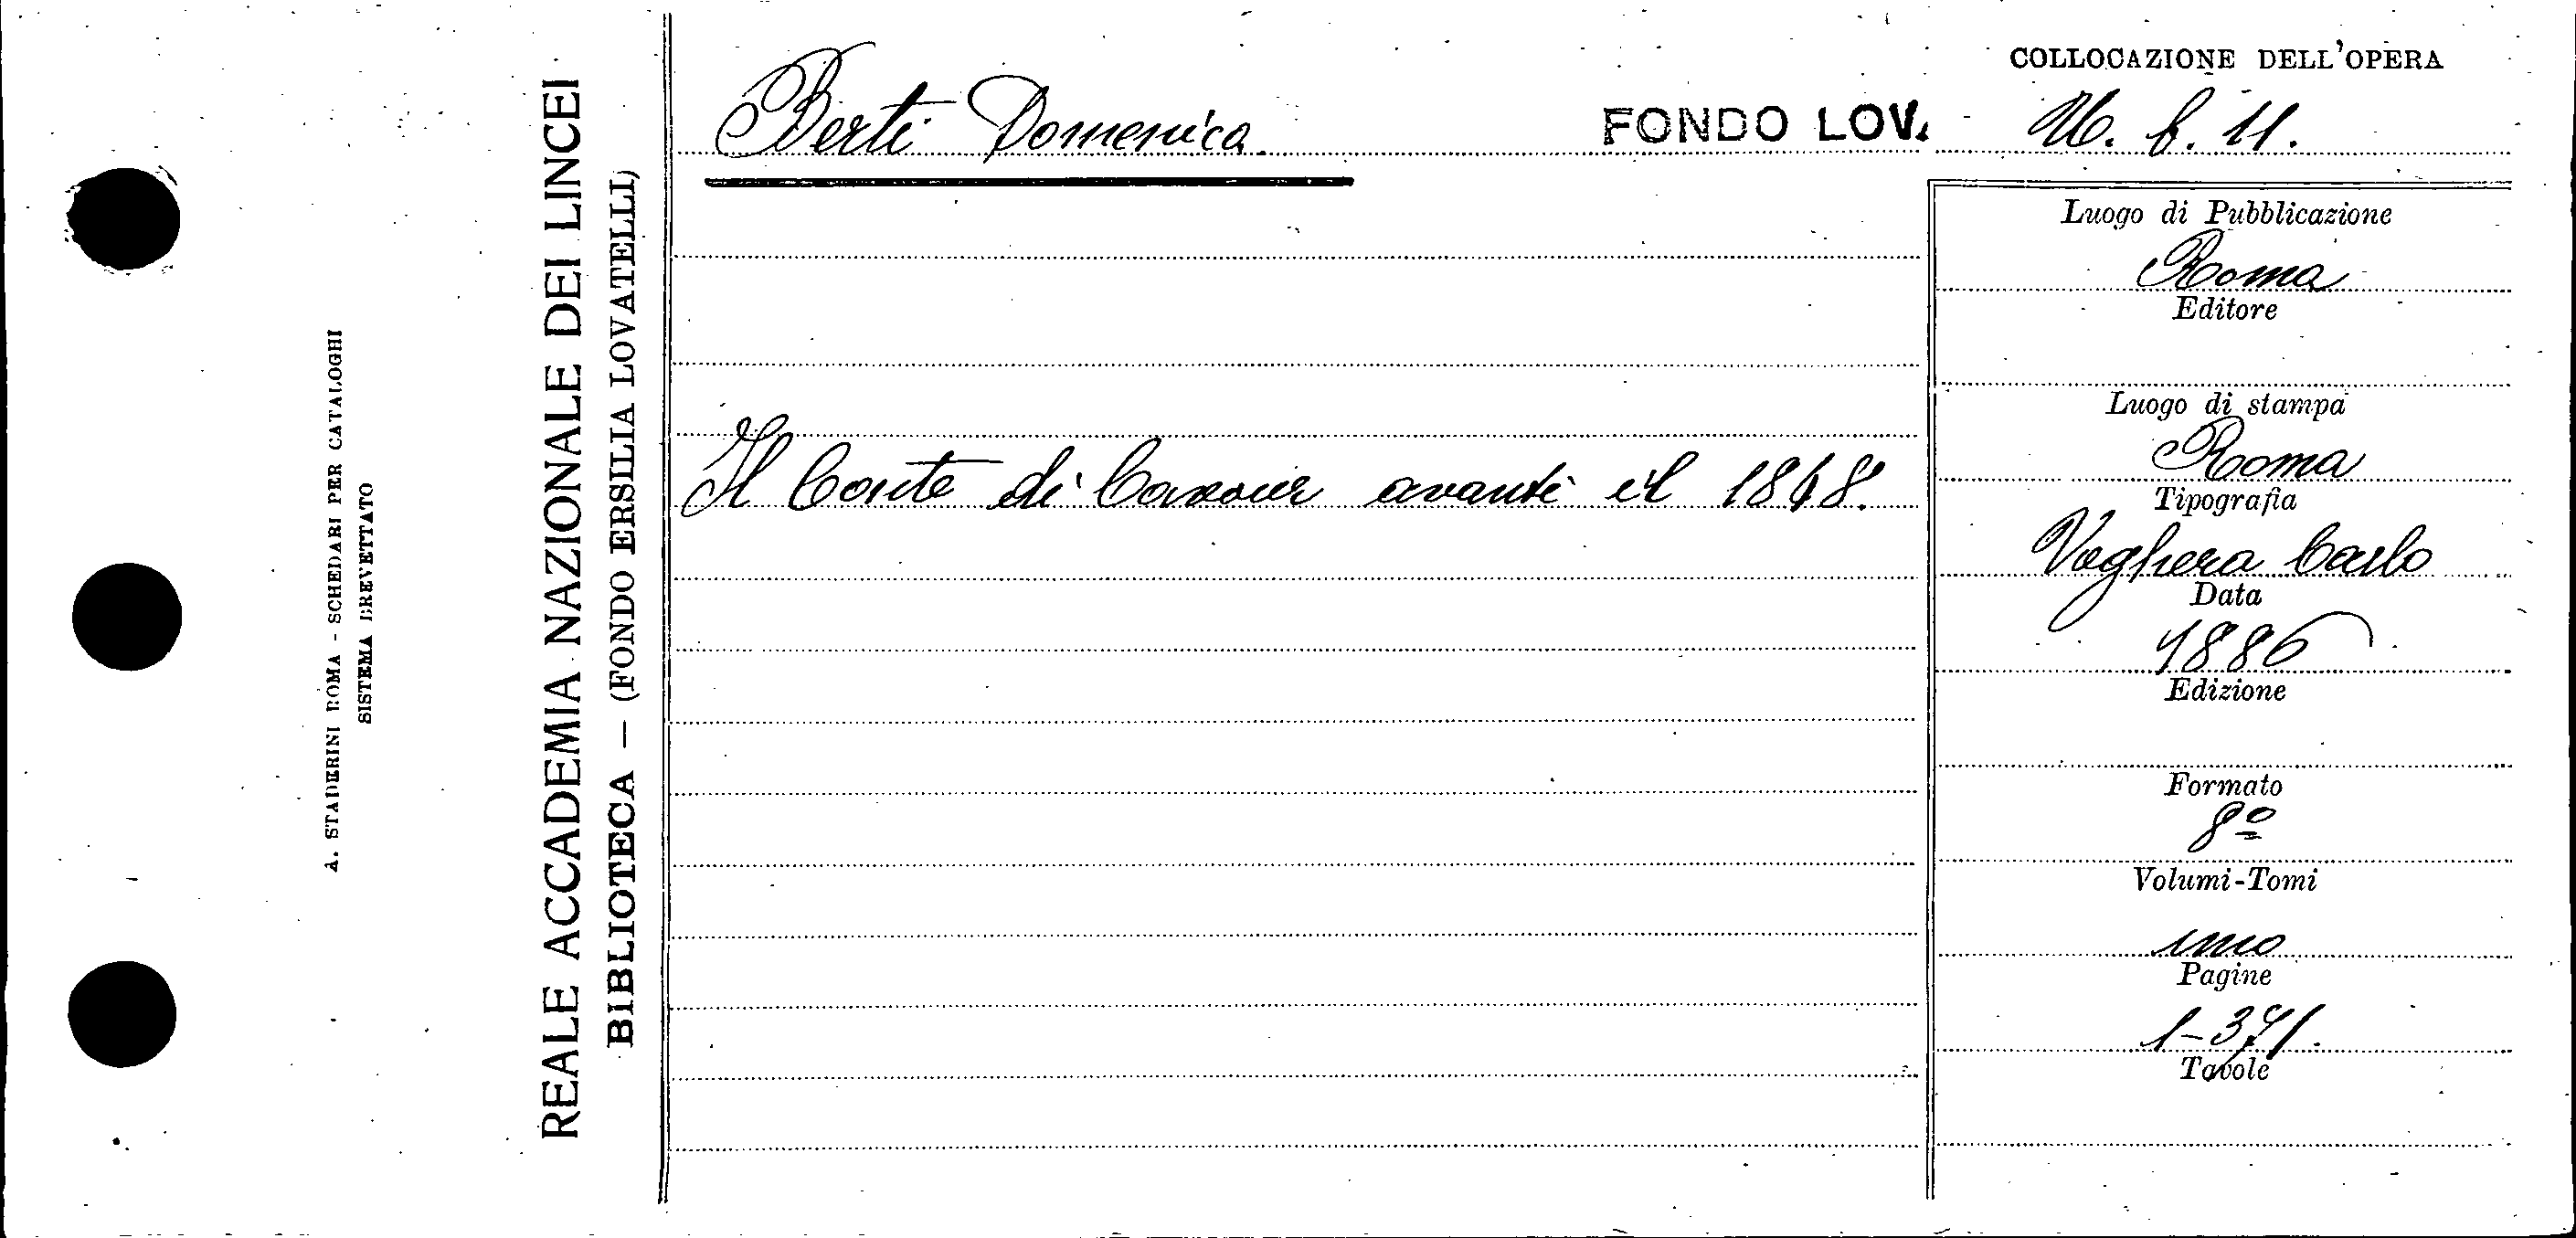 A. STADERINI ROMA - SCHEDARI PER CATALOGHI
SISTEMA BREVETTATO
REALE ACCADEMIA NAZIONALE DEI LINCEI
BIBLIOTECA — (FONDO ERSILIA LOVATELLI)
Berti Domenico.
FONDO LOV.
Il Conte di Cavour avanti il 1848.
COLLOCAZIONE DELL'OPERA
b. 11.
Luogo di Pubblicazione
Roma
Editore
Luogo di stampa
Roma
Tipografia
Voghera Carlo
Data
1886
Edizione
Formato
8º
Volumi-Tomi
uno
Pagine
1-371.
Tavole